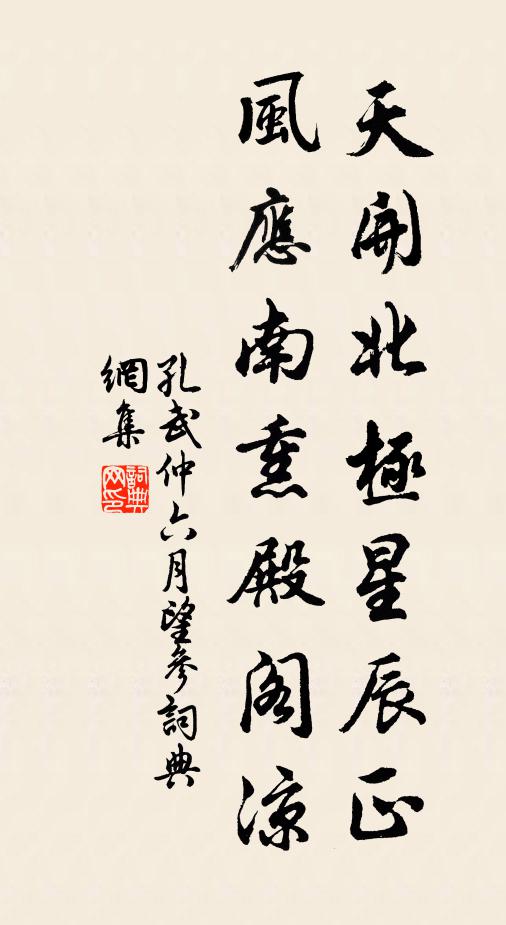 天開北極星辰正
風應南熏殿閣涼
孔武仲六月望參詞典
網集
詞典
网印